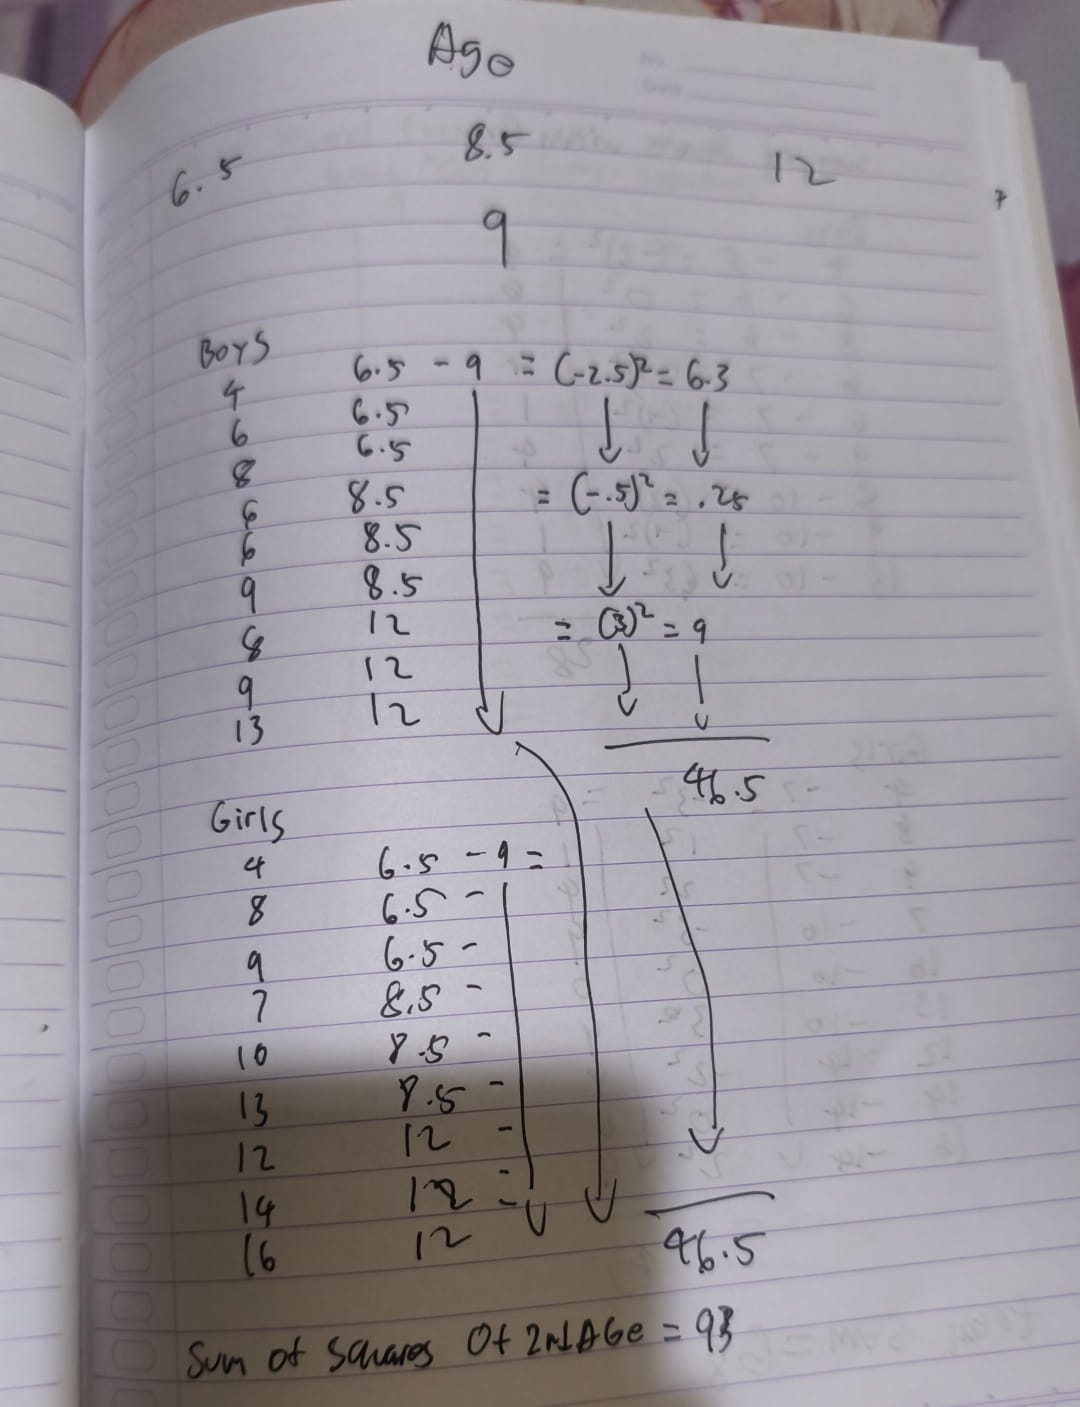 Age
6.5 8.5 12
9
Boys
4 6.5 - 9 = (-2.5)² = 6.3
6 6.5
8 6.5
6 8.5 = (-.5)² = .25
6 8.5
9 8.5
8 12 = (3)² = 9
9 12
13 12
46.5
Girls
4 6.5 - 9 =
8 6.5 -
9 6.5 -
7 8.5 -
10 8.5 -
13 8.5 -
12 12 -
14 12 -
16 12
46.5
Sum of Squares Of 2nd AGe = 93